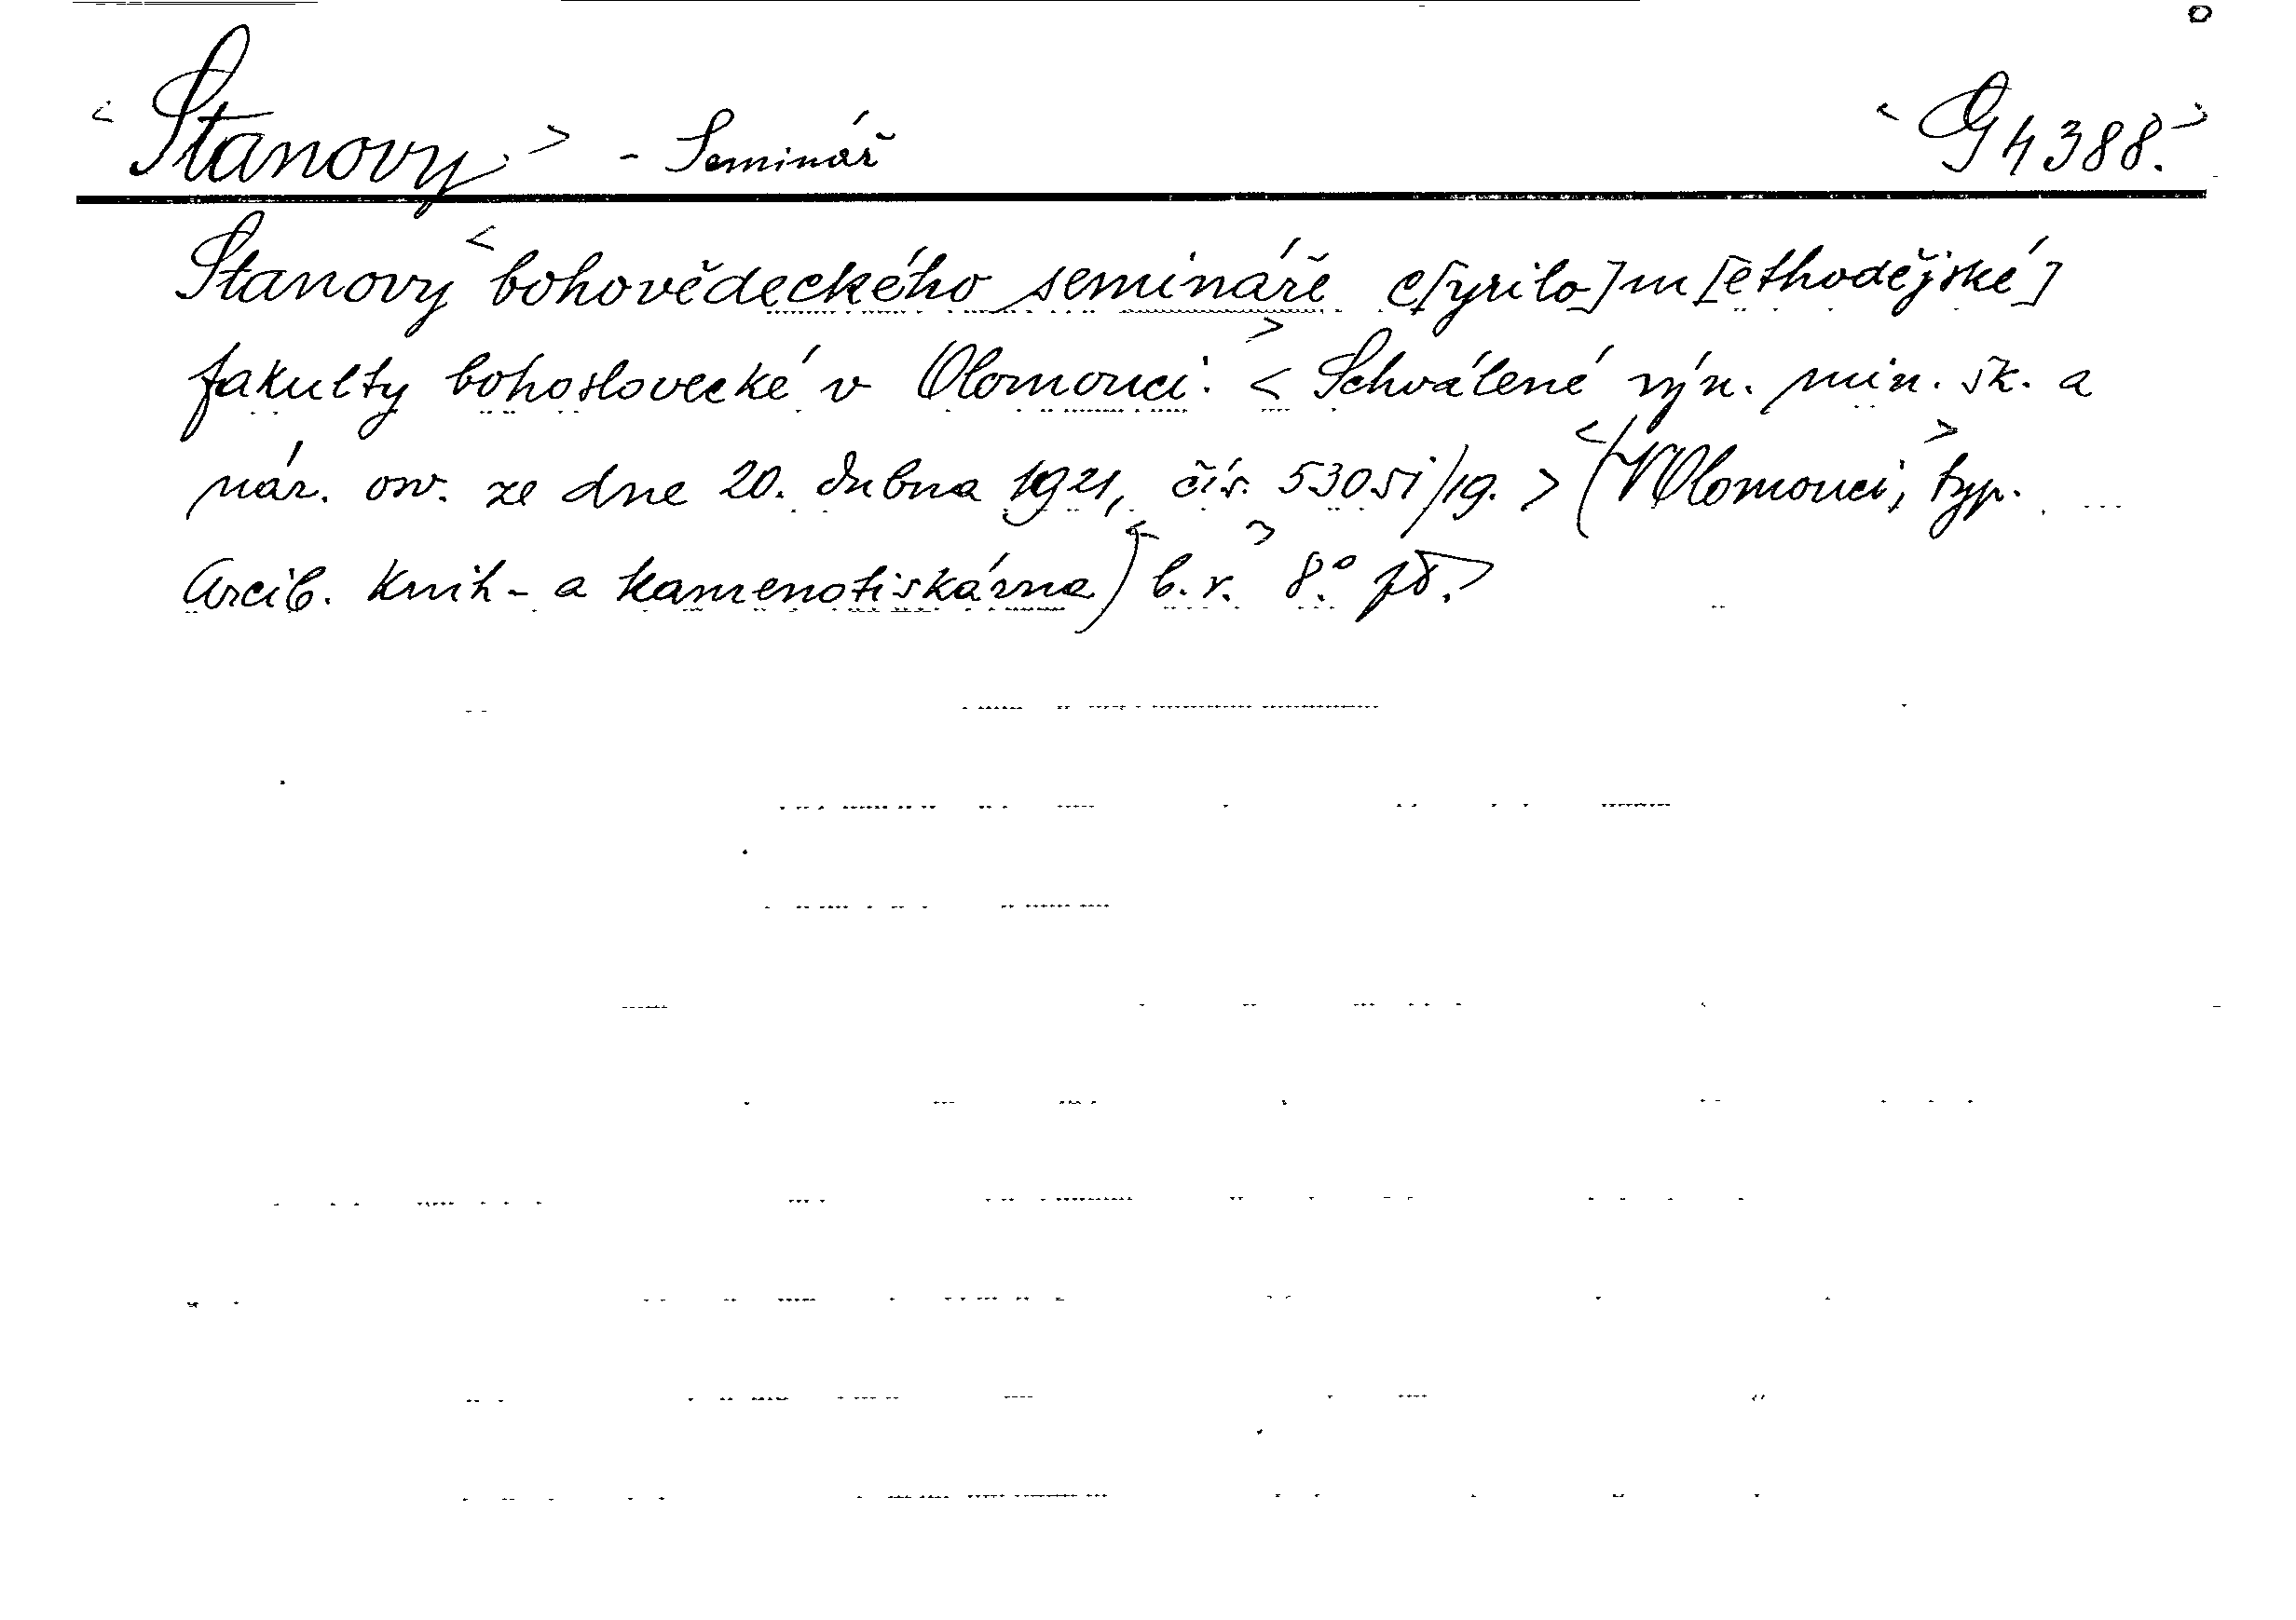 <Stanovy> - Seminář <G 4388.>
Stanovy <bohovědeckého semináře c[yrilo]m[ethodějské]
fakulty bohoslovecké v Olomouci.> <Schválené výn. min. šk. a
nár. osv. ze dne 20. dubna 1921, čís. 53051/19.> (<V Olomouci,> typ.
Arcib. knih- a kamenotiskárna) <b. r.> 8.°